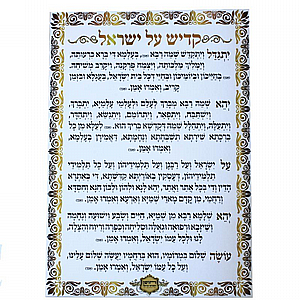 קדיש על ישראל
יתגדל ויתקדש שמה רבא (אמן) בעלמא די ברא כרעותה,
וימליך מלכותה, ויצמח פרקנה, ויקרב משיחה,
(אמן) בחייכון וביומיכון ובחיי דכל בית ישראל, בעגלא ובזמן
קריב, ואמרו אמן.
יהא שמה רבא מברך לעלם ולעלמי עלמיא, יתברך,
וישתבח, ויתפאר, ויתרומם, ויתנשא, ויתהדר,
ויתעלה, ויתהלל שמה דקדשא בריך הוא. (אמן) לעלא מן כל
ברכתא שירתא, תשבחתא ונחמתא, דאמירן בעלמא,
ואמרו אמן.
על ישראל ועל רבנן ועל תלמידיהון ועל כל תלמידי
תלמידיהון, דעסקין באוריתא קדשתא, די באתרא
הדין ודי בכל אתר ואתר, יהא לנא ולהון ולכון חנא וחסדא
ורחמי, מן קדם מארי שמיא וארעא ואמרו אמן.
יהא שלמא רבא מן שמיא, חיים ושבע וישועה ונחמה
ושיזבא ורפואה וגאולה וסליחה וכפרה ורוח והצלה,
לנו ולכל עמו ישראל, ואמרו אמן.
עושה שלום במרומיו, הוא ברחמיו יעשה שלום עלינו,
ועל כל עמו ישראל, ואמרו אמן.